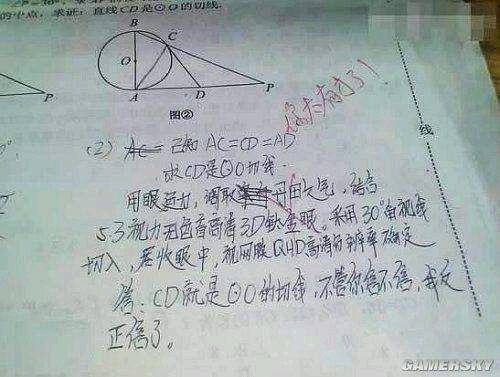 的中点,求证:直线CD是⊙O的切线.
B
C
O
A
D
P
P
图②
你太有才了!
线
(2) 已知 AC=CD=AD
求CD是⊙O切线.
用眼 调取 丹田之气,结合
5.3视力无色盲高清3D钛金眼。采用30°角视线
切入,尽收眼中,视网膜QHD高清的利率确定
答:CD就是⊙O的切线,不管你信不信,我反
正信了。
GAMERSKY